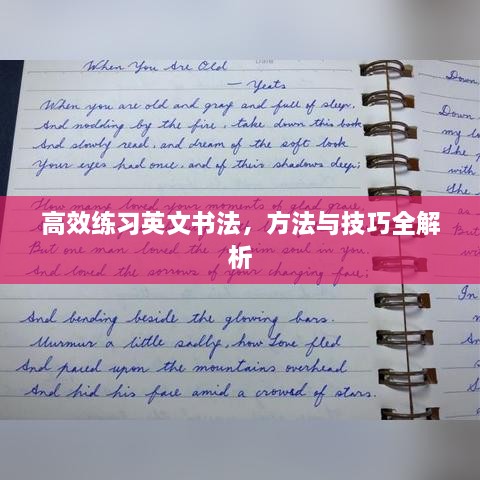 When You Are Old
— Yeats
When you are old and gray and full of sleep,
And nodding by the fire, take down this book
And slowly read, and dream of the soft look
Your eyes had once, and of their shadows deep;
How many loved your moments of glad grace,
高效练习英文书法，方法与技巧全解
析
But one man loved the pilgrim soul in you.
And loved the sorrows of your changing face;
And bending beside the glowing bars.
Murmur a little sadly, how Love fled
And paced upon the mountains overhead
And hid his face amid a crowd of stars.
Down
Down
my lo
She
with
She
In
An
She